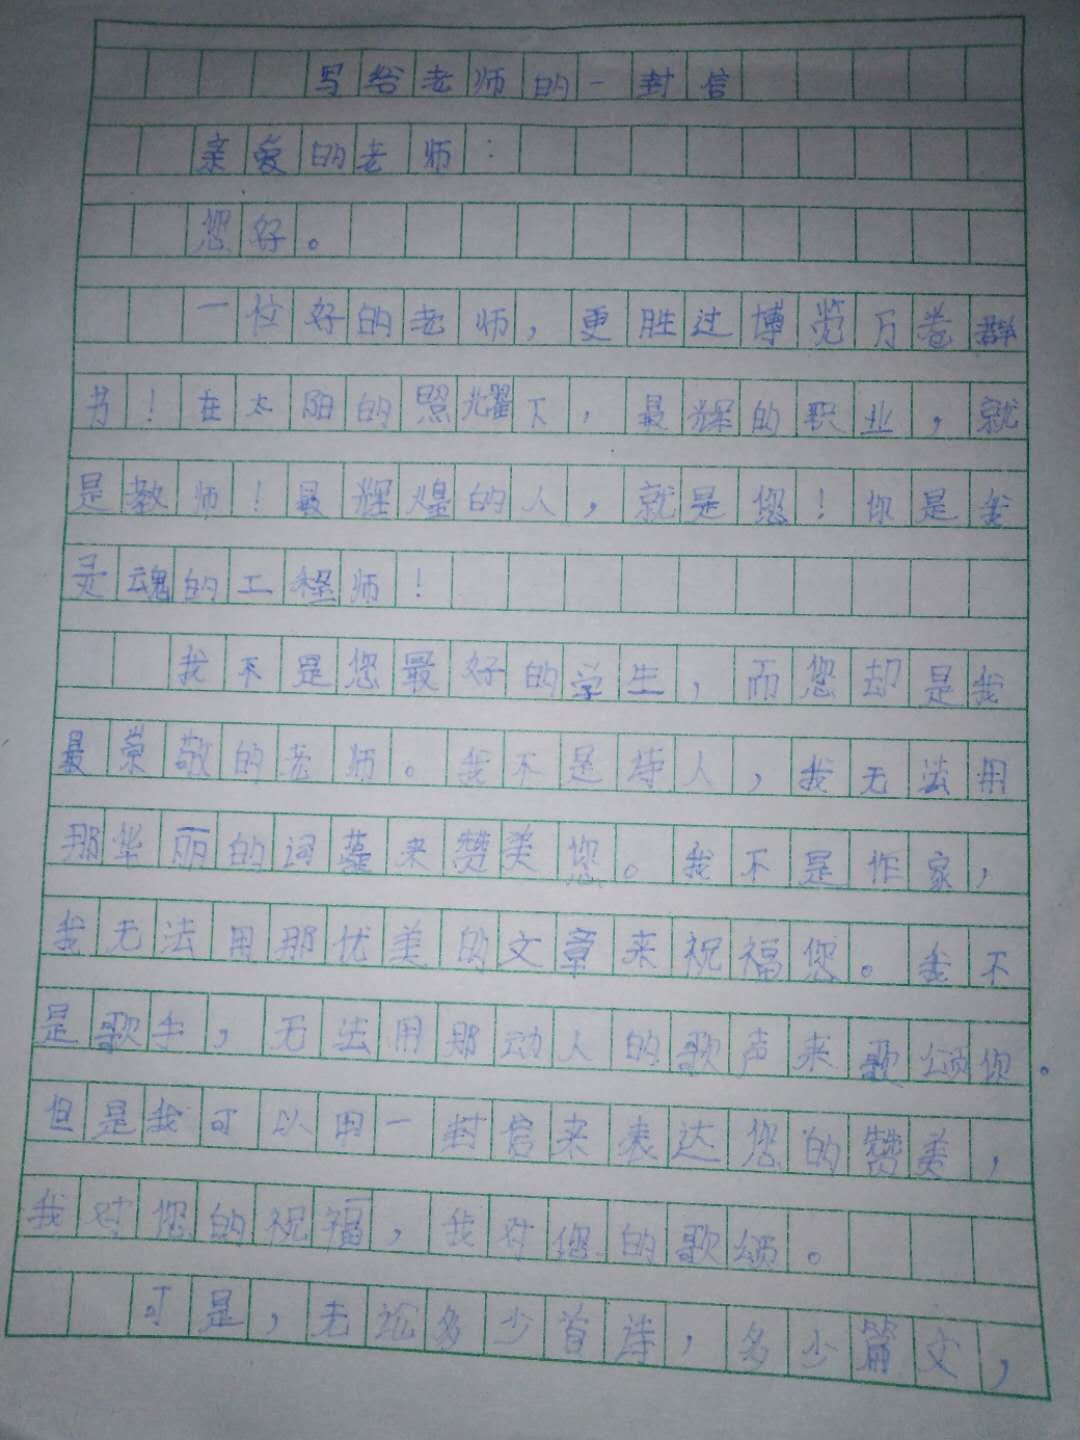 写给老师的一封信
亲爱的老师：
您好。
一位好的老师，更胜过博览万卷群
书！在太阳的照耀下，最辉的职业，就
是教师！最辉煌的人，就是您！你是我
灵魂的工程师！
我不是您最好的学生，而您却是我
最崇敬的老师。我不是诗人，我无法用
那华丽的词藻来赞美您。我不是作家，
我无法用那优美的文章来祝福您。我不
是歌手，无法用那动人的歌声来歌颂你。
但是我可以用一封信来表达您的赞美，
我对您的祝福，我对您的歌颂。
可是，无论多少首诗，多少篇文，